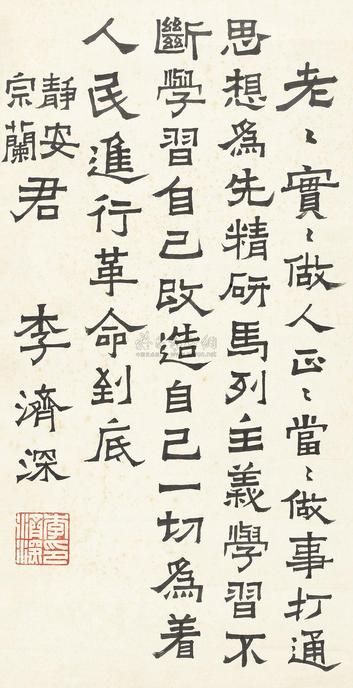 老〻實〻做人正〻當〻做事打通
思想為先精研馬列主義學習不
斷學習自己改造自己一切為着
人民進行革命到底
靜安
宗蘭
君
李濟深